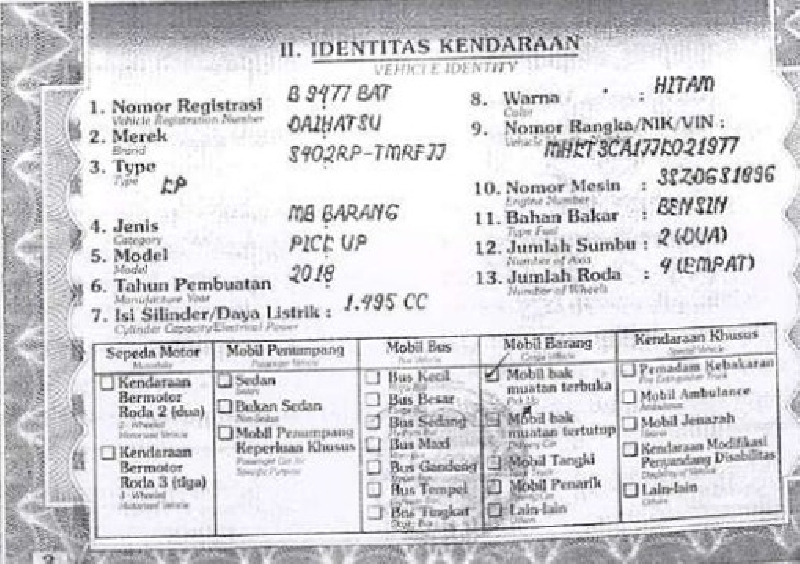 II. IDENTITAS KENDARAAN
VEHICLE IDENTITY
1. Nomor Registrasi B 9477 BAT
Vehicle Registration Number
2. Merek DAIHATSU
Brand
3. Type S402RP-TMRFJJ
Type KP
4. Jenis MB BARANG
Category
5. Model PICK UP
Model
6. Tahun Pembuatan 2018
Manufacture Year
7. Isi Silinder/Daya Listrik : 1.495 CC
Cylinder Capacity/Electrical Power
8. Warna : HITAM
Color
9. Nomor Rangka/NIK/VIN :
Vehicle
MHKT3CA1JJK021977
10. Nomor Mesin :
Engine Number
11. Bahan Bakar : BENSIN
Type Fuel
12. Jumlah Sumbu : 2 (DUA)
Number of Axis
13. Jumlah Roda : 4 (EMPAT)
Number of Wheels
Sepeda Motor
Mobil Penumpang
Mobil Bus
Mobil Barang
Kendaraan Khusus
Kendaraan
Bermotor
Roda 2 (dua)
2 - Wheeled
Motorized Vehicle
Kendaraan
Bermotor
Roda 3 (tiga)
3 - Wheeled
Motorized Vehicle
Sedan
Sedan
Bukan Sedan
Non-Sedan
Mobil Penumpang
Keperluan Khusus
Passenger Car for
Specific Purpose
Bus Kecil
Bus Besar
Bus Sedang
Bus Maxi
Bus Gandeng
Bus Tempel
Bus Tingkat
Mobil bak
muatan terbuka
Pick Up
Mobil bak
muatan tertutup
Mobil Tangki
Mobil Penarik
Lain-lain
Others
Pemadam Kebakaran
Mobil Ambulance
Ambulance
Mobil Jenazah
Kendaraan Modifikasi
Penyandang Disabilitas
Lain-lain
Others